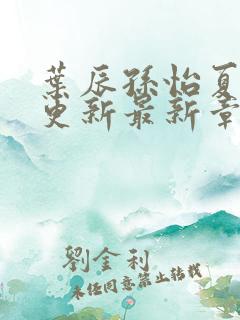 葉辰孫怡夏
更新最新章
劉金利
未经同意禁止转载